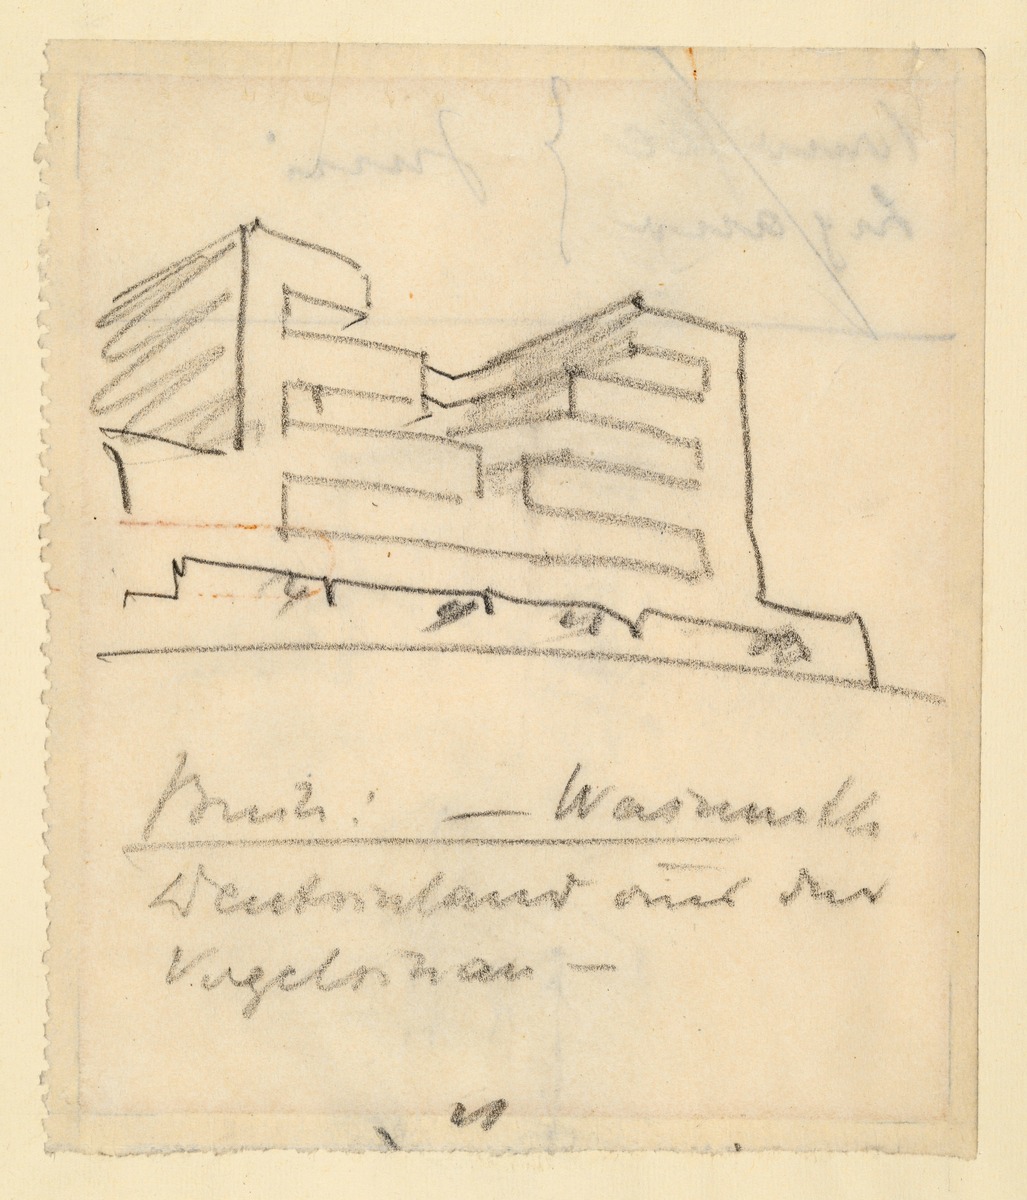 Buch: — Wasmuth
Deutschland aus der
Vogelschau —